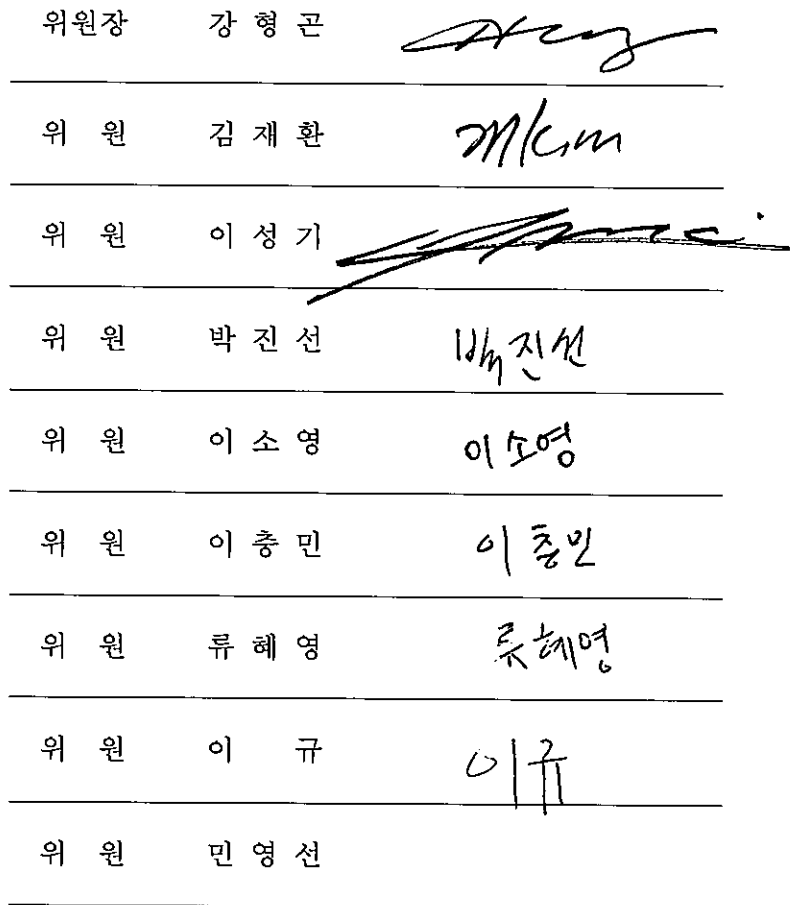 위원장 강 형 곤
위 원 김 재 환 재kim
위 원 이 성 기
위 원 박 진 선 박진선
위 원 이 소 영 이소영
위 원 이 충 민 이충민
위 원 류 혜 영 류혜영
위 원 이 규 이규
위 원 민 영 선